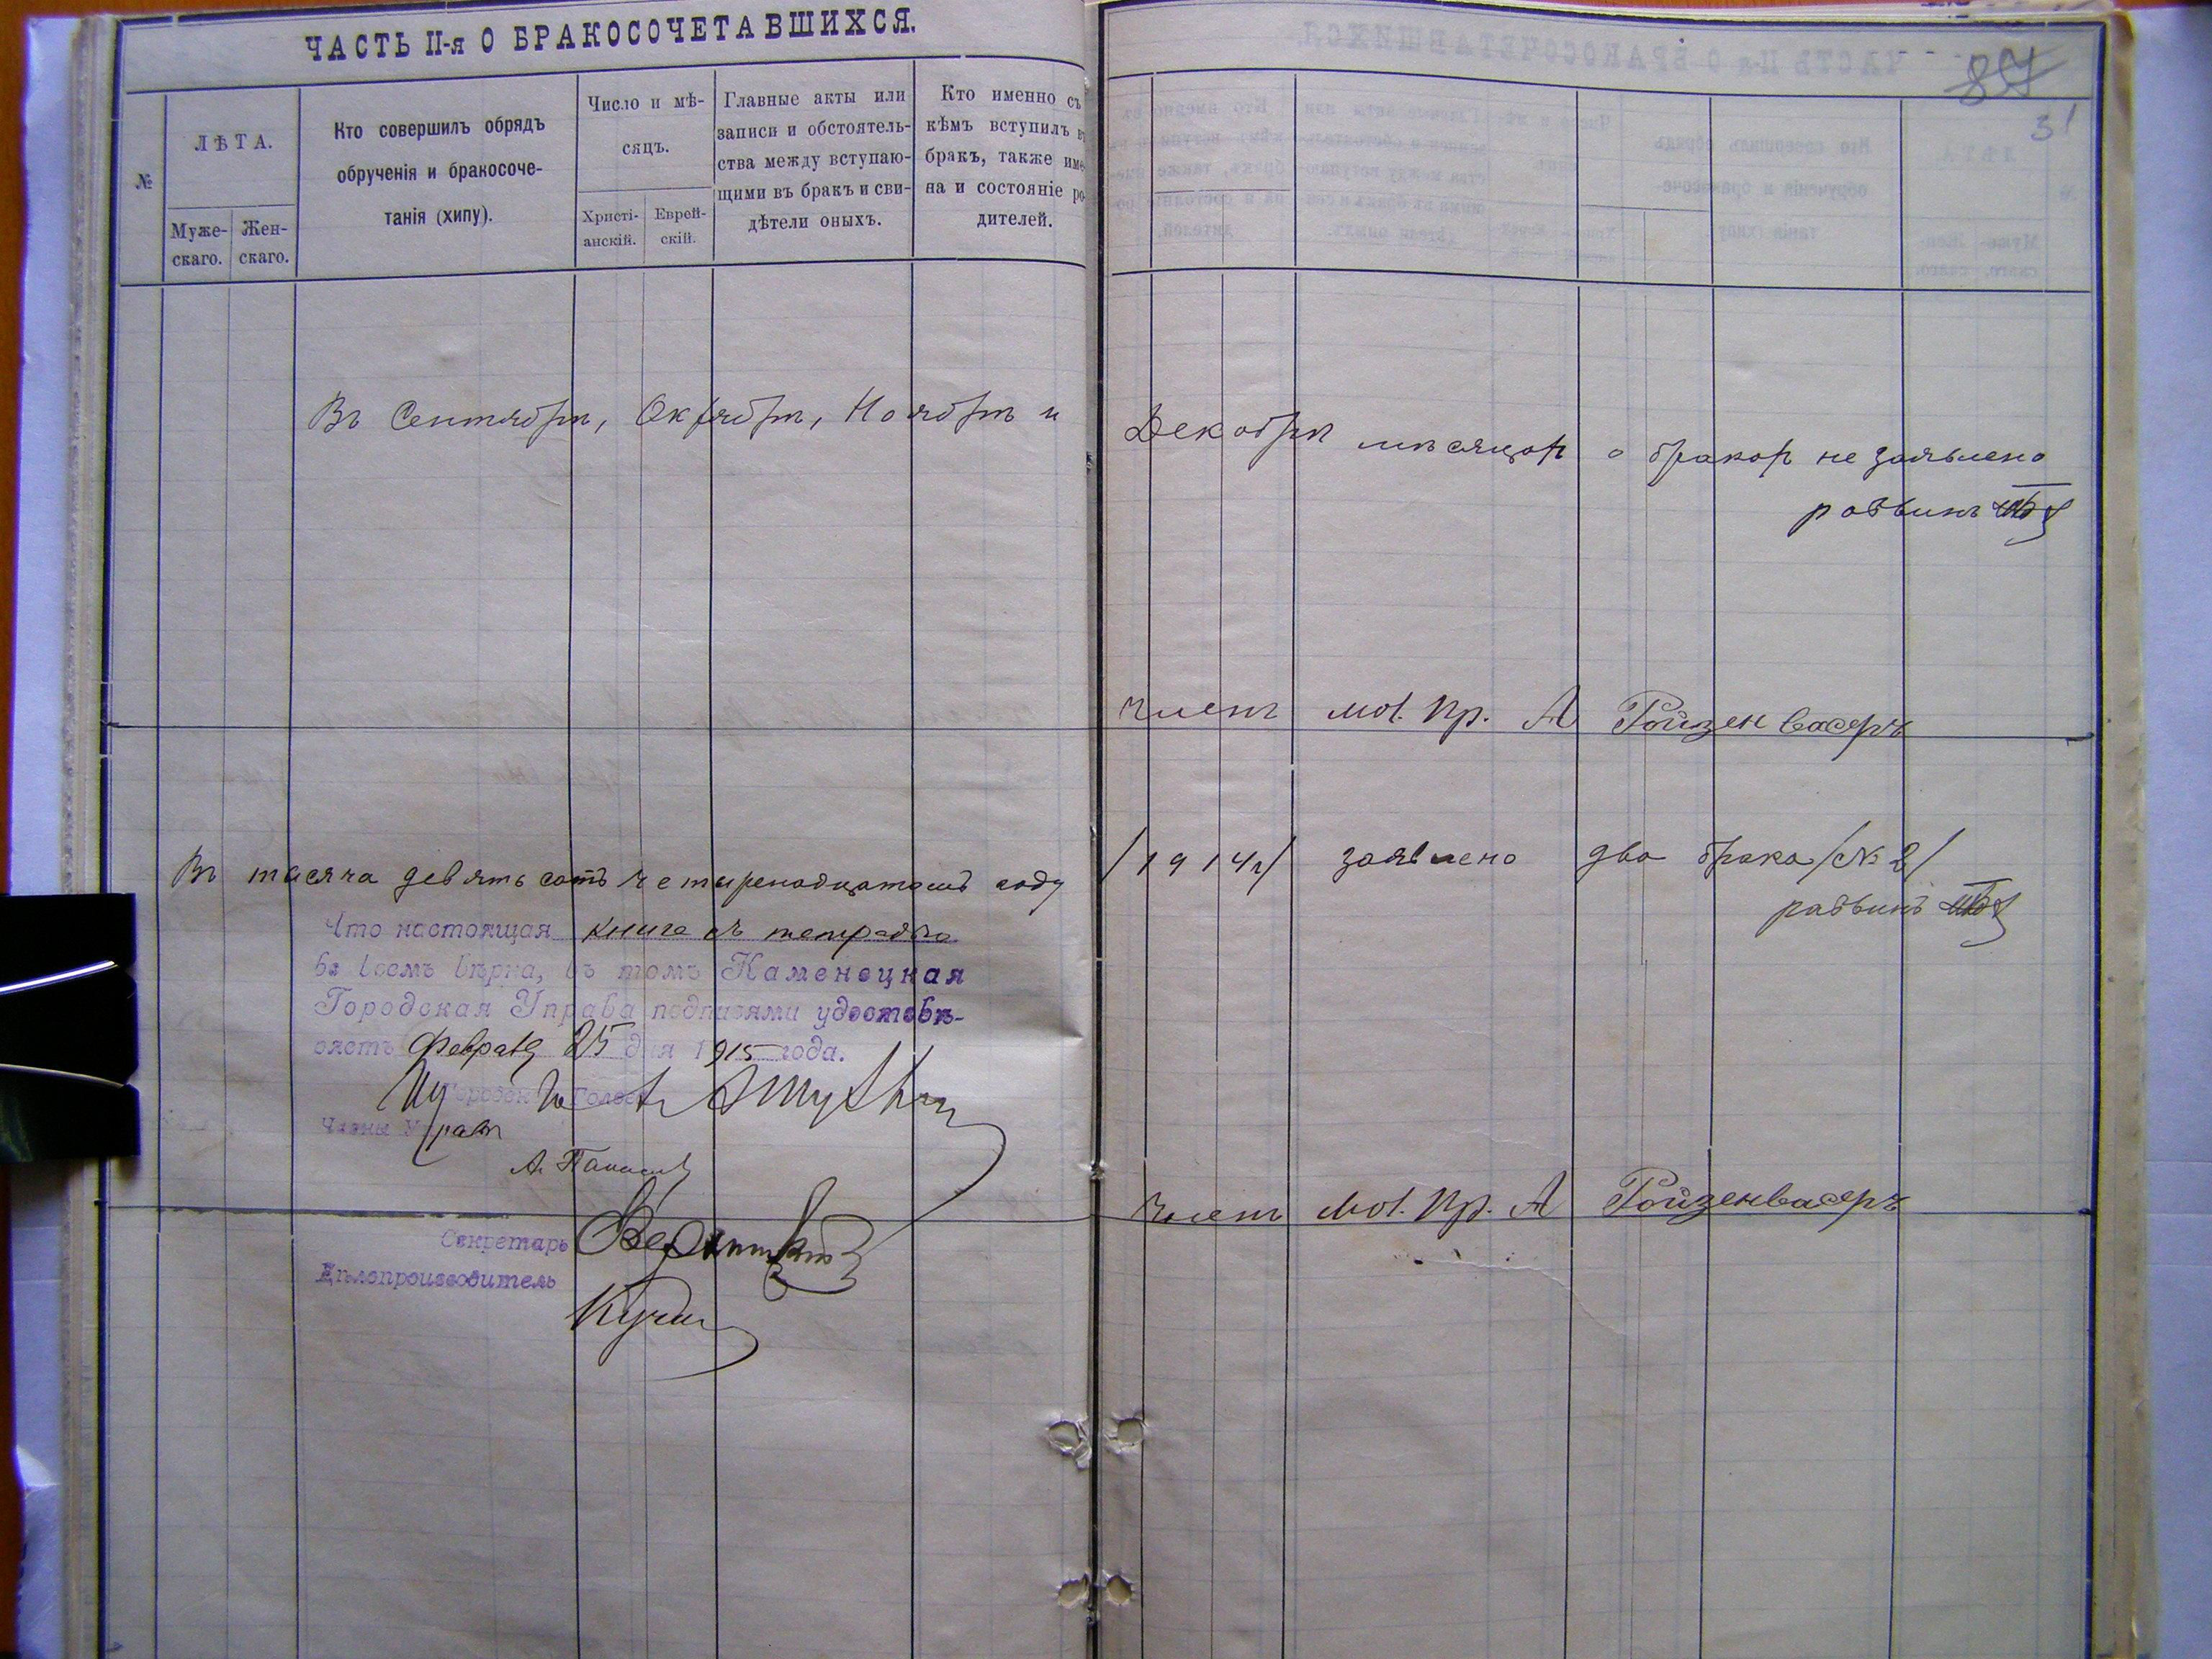 ЧАСТЬ II-я О БРАКОСОЧЕТАВШИХСЯ.
87
31
№
ЛѢТА.
Муже-
скаго.
Жен-
скаго.
Кто совершилъ обрядъ
обрученія и бракосоче-
танія (хипу).
Число и мѣ-
сяцъ.
Христі-
анскій.
Еврей-
скій.
Главные акты или
записи и обстоятель-
ства между вступаю-
щими въ бракъ и сви-
дѣтели оныхъ.
Кто именно съ
кѣмъ вступилъ въ
бракъ, также име-
на и состояніе ро-
дителей.
Въ Сентябрѣ, Октябрѣ, Ноябрѣ и Декабрѣ мѣсяцах о браках не заявлено
раввинъ
Членъ мол. Пр. А Ройзенвасеръ
Въ тысяча девятьсотъ четыренадцатомъ году /1914г/ заявлено два брака /№ 2/
раввинъ
Что настоящая книга съ тетрадью
во всемъ вѣрна, въ томъ Каменецкая
Городская Управа подписями удостовѣ-
ряетъ Февраля 25 дня 1915 года.
Городск Голов
Члены Управы
Членъ Мол. Пр. А Ройзенвасеръ
Секретарь
Дѣлопроизводитель